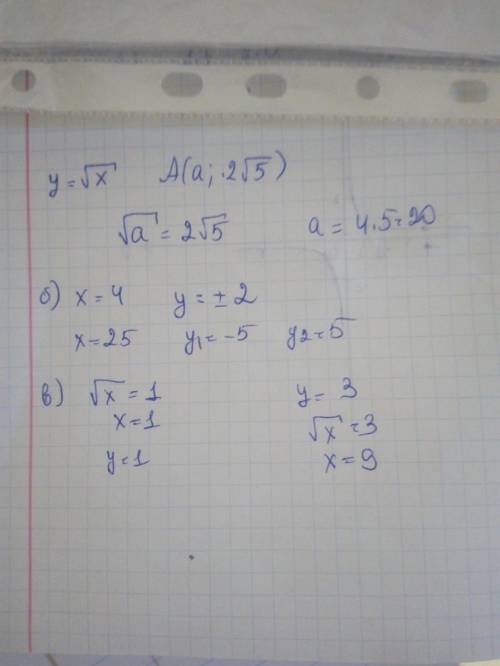 y = √x A(a; 2√5)
√a = 2√5 a = 4.5=20
б) x = 4 y = ± 2
x = 25 y₁ = -5 y₂ = 5
в) √x = 1 y = 3
x = 1 √x = 3
y = 1 x = 9